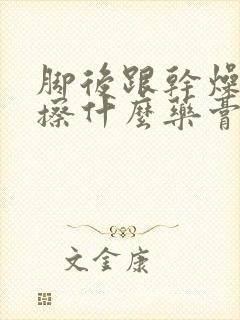 脚後跟幹燥
擦什麼藥膏
文金康